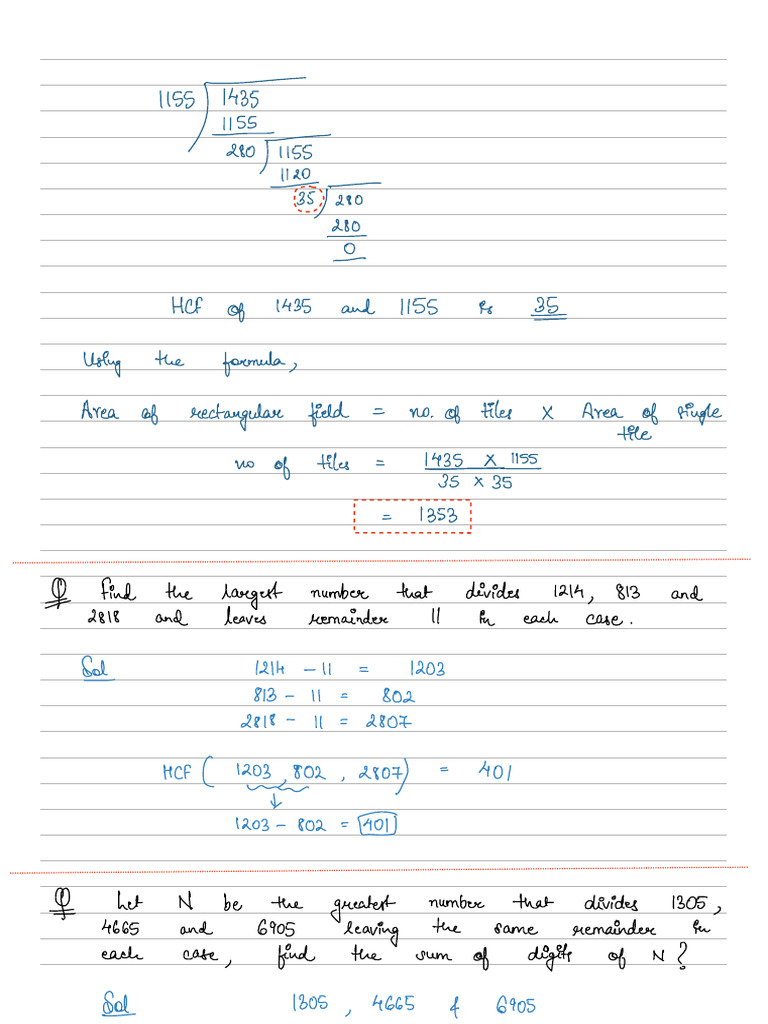 1155 ) 1435
1155
280 ) 1155
1120
35 ) 280
280
0
HCF of 1435 and 1155 is 35
Using the formula,
Area of rectangular field = no. of tiles x Area of single
tile
no of tiles = 1435 x 1155
35 x 35
= 1353
Q Find the largest number that divides 1214, 813 and
2818 and leaves remainder 11 in each case.
Sol 1214 - 11 = 1203
813 - 11 = 802
2818 - 11 = 2807
HCF ( 1203, 802, 2807) = 401
↓
1203 - 802 = 401
Q Let N be the greatest number that divides 1305,
4665 and 6905 leaving the same remainder in
each case, find the sum of digits of N?
Sol 1305, 4665 & 6905